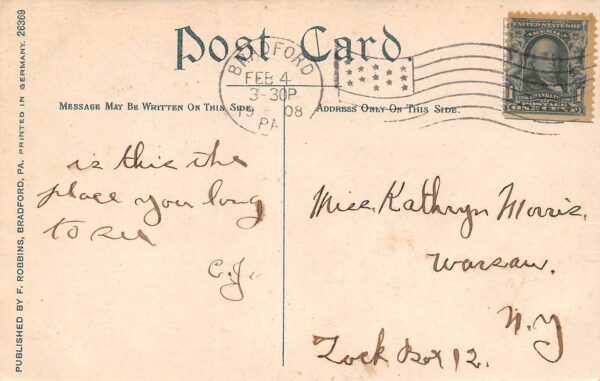 Post Card.
BRADFORD
FEB 4
3-30P
1908
PA
UNITED STATES OF
AMERICA
1
MESSAGE MAY BE WRITTEN ON THIS SIDE.
ADDRESS ONLY ON THIS SIDE.
is this the
place you long
to see
C.J.
Miss. Kathryn Morris.
Warsaw.
N.Y
Lock Box 12.
PUBLISHED BY F. ROBBINS, BRADFORD, PA. PRINTED IN GERMANY. 26369